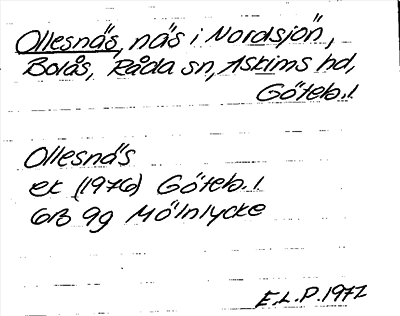 Ollesnäs, näs i Nordsjön,
Bolås, Råda sn, Askims hd,
Göteb. l.
Ollesnäs
ek (1976) Göteb. l.
6B 9g Mölnlycke
E.L.P. 1977